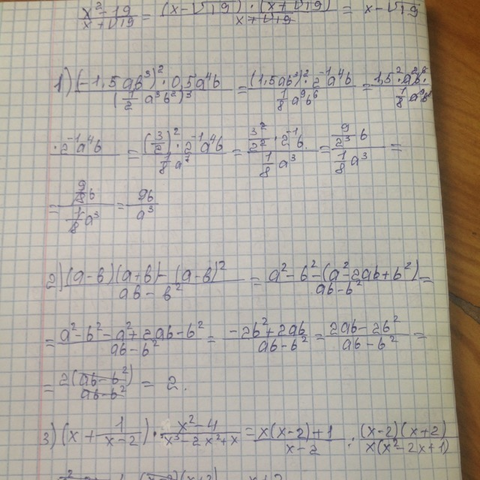 (x² - 19)/(x + √19) = ((x - √19) · (x + √19))/(x + √19) = x - √19
1) ((-1,5ab³)² · 0,5a⁴b)/((1/2 a³b²)³) = ((1,5ab³)² · 2⁻¹a⁴b)/(1/8 a⁹b⁶) = (1,5² · a²b⁶ ·)/(1/8 a⁹b⁶)
· 2⁻¹a⁴b = ((3/2)² · 2⁻¹a⁴b)/(1/8 a⁷) = (3²/2² · 2⁻¹b)/(1/8 a³) = (9/2³ b)/(1/8 a³) =
= (9/8 b)/(1/8 a³) = 9b/a³
2) ((a-b)(a+b) - (a-b)²)/(ab - b²) = (a² - b² - (a² - 2ab + b²))/(ab - b²) =
= (a² - b² - a² + 2ab - b²)/(ab - b²) = (-2b² + 2ab)/(ab - b²) = (2ab - 2b²)/(ab - b²) =
= 2(ab - b²)/(ab - b²) = 2.
3) (x + 1/(x-2)) · (x² - 4)/(x³ - 2x² + x) = (x(x-2) + 1)/(x-2) · ((x-2)(x+2))/(x(x² - 2x + 1))